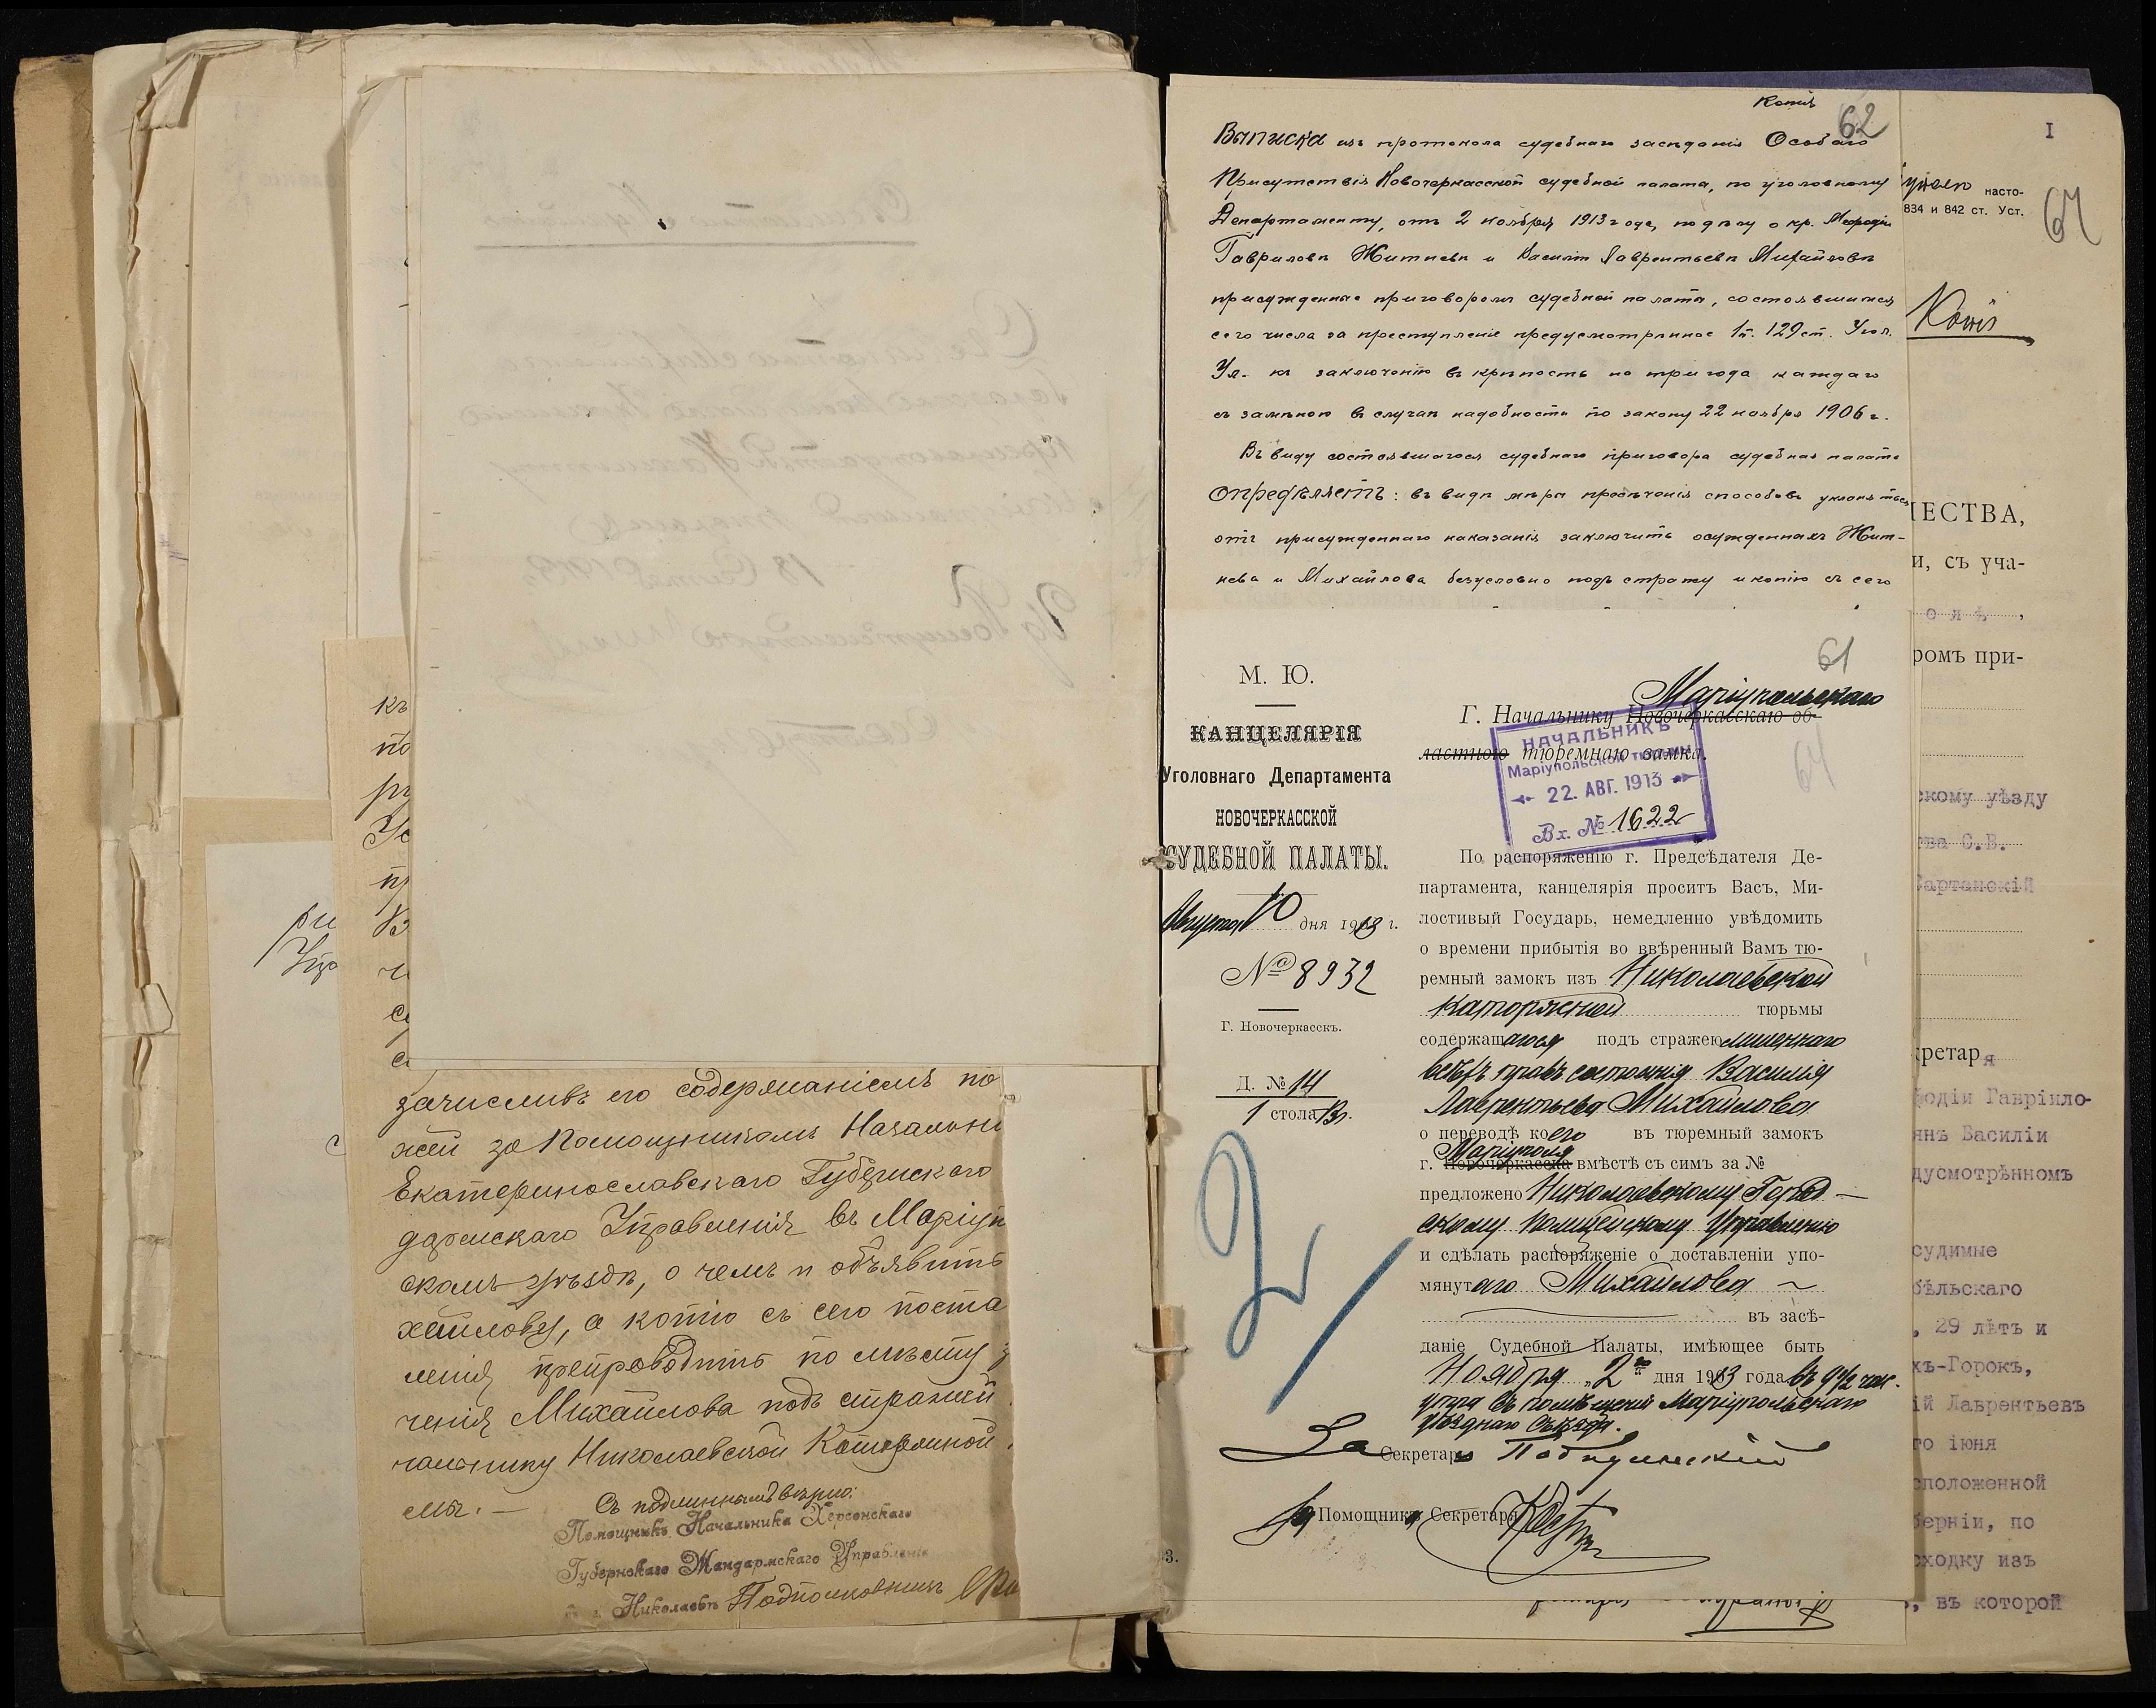 къ
по
Ус
пр
Вз
зачисливъ его содержаніемъ по
жей за Помощникомъ Начальни
Екатеринославскаго Губернскаго
дармскаго Управленія въ Маріуп
скомъ уѣздѣ, о чемъ и объявить
хайлову, а копію съ сего поста
ленія препроводить по мѣсту
ченія Михайлова подъ стражей
чальнику Николаевской Каторжной
мы. —
Съ подлиннымъ вѣрно:
Помощникъ Начальника Херсонскаго
Губернскаго Жандармскаго Управленія
Николаевѣ Подполковникъ
Копія
62
Выписка изъ протокола судебнаго засѣданія Особаго
Присутствія Новочеркасской судебной палаты, по уголовному
Департаменту, отъ 2 ноября 1913 года, по дѣлу о кр. Мефодіи
Гавриловѣ Житневѣ и Василіи Лаврентьевѣ Михайловѣ
присужденные приговоромъ судебной палаты, состоявшимся
сего числа за преступленіе предусмотрѣнное 1 п. 129 ст. Угол.
Ул. къ заключенію въ крѣпость на три года каждаго
съ замѣною въ случаѣ надобности по закону 22 ноября 1906 г.
Въ виду состоявшагося судебнаго приговора судебная палата
опредѣляетъ: въ видѣ мѣры пресѣченія способовъ уклоняться
отъ присужденнаго наказанія заключить осужденныхъ Жит-
нева и Михайлова безусловно подъ стражу и копію съ сего
61
М. Ю.
КАНЦЕЛЯРІЯ
Уголовнаго Департамента
НОВОЧЕРКАССКОЙ
СУДЕБНОЙ ПАЛАТЫ.
Августа 10 дня 1913 г.
№ 8932
Г. Новочеркасскъ.
Д. № 14
1 стола 13 г.
Маріупольскаго
Г. Начальнику Новочеркасскаго об-
ластного тюремнаго замка.
НАЧАЛЬНИКЪ
Маріупольской тюрьмы
22. АВГ. 1913
Вх. № 1622
64
По распоряженію г. Предсѣдателя Де-
партамента, канцелярія проситъ Васъ, Ми-
лостивый Государь, немедленно увѣдомить
о времени прибытія во ввѣренный Вамъ тю-
ремный замокъ изъ Николаевской
Каторжной тюрьмы
содержащагося подъ стражею лишеннаго
всѣхъ правъ состоянія Василія
Лаврентьева Михайлова
о переводѣ коего въ тюремный замокъ
Маріуполя
г. Новочеркасска вмѣстѣ съ симъ за №
предложено Николаевскому Город—
скому Полицейскому Управленію
и сдѣлать распоряженіе о доставленіи упо-
мянутаго Михайлова
въ засѣ-
даніе Судебной Палаты, имѣющее быть
Ноября „2го дня 1913 года въ 9½ час.
утра въ помѣщеніи Маріупольскаго
уѣзднаго Съѣзда.
За Секретаря
За Помощника Секретаря
3.
1
насто-
834 и 842 ст. Уст.
64
Копія
ЧЕСТВА,
и, съ уча-
о л ѣ ,
ромъ при-
скому уѣзду
тва С.В.
Сартанскій
кретаря
фодіи Гавріило-
янъ Василіи
дусмотрѣнномъ
судимые
бѣльскаго
, 29 лѣтъ и
хъ-Горокъ,
ій Лаврентьевъ
го іюня
сположенной
берніи, по
сходку изъ
, въ которой